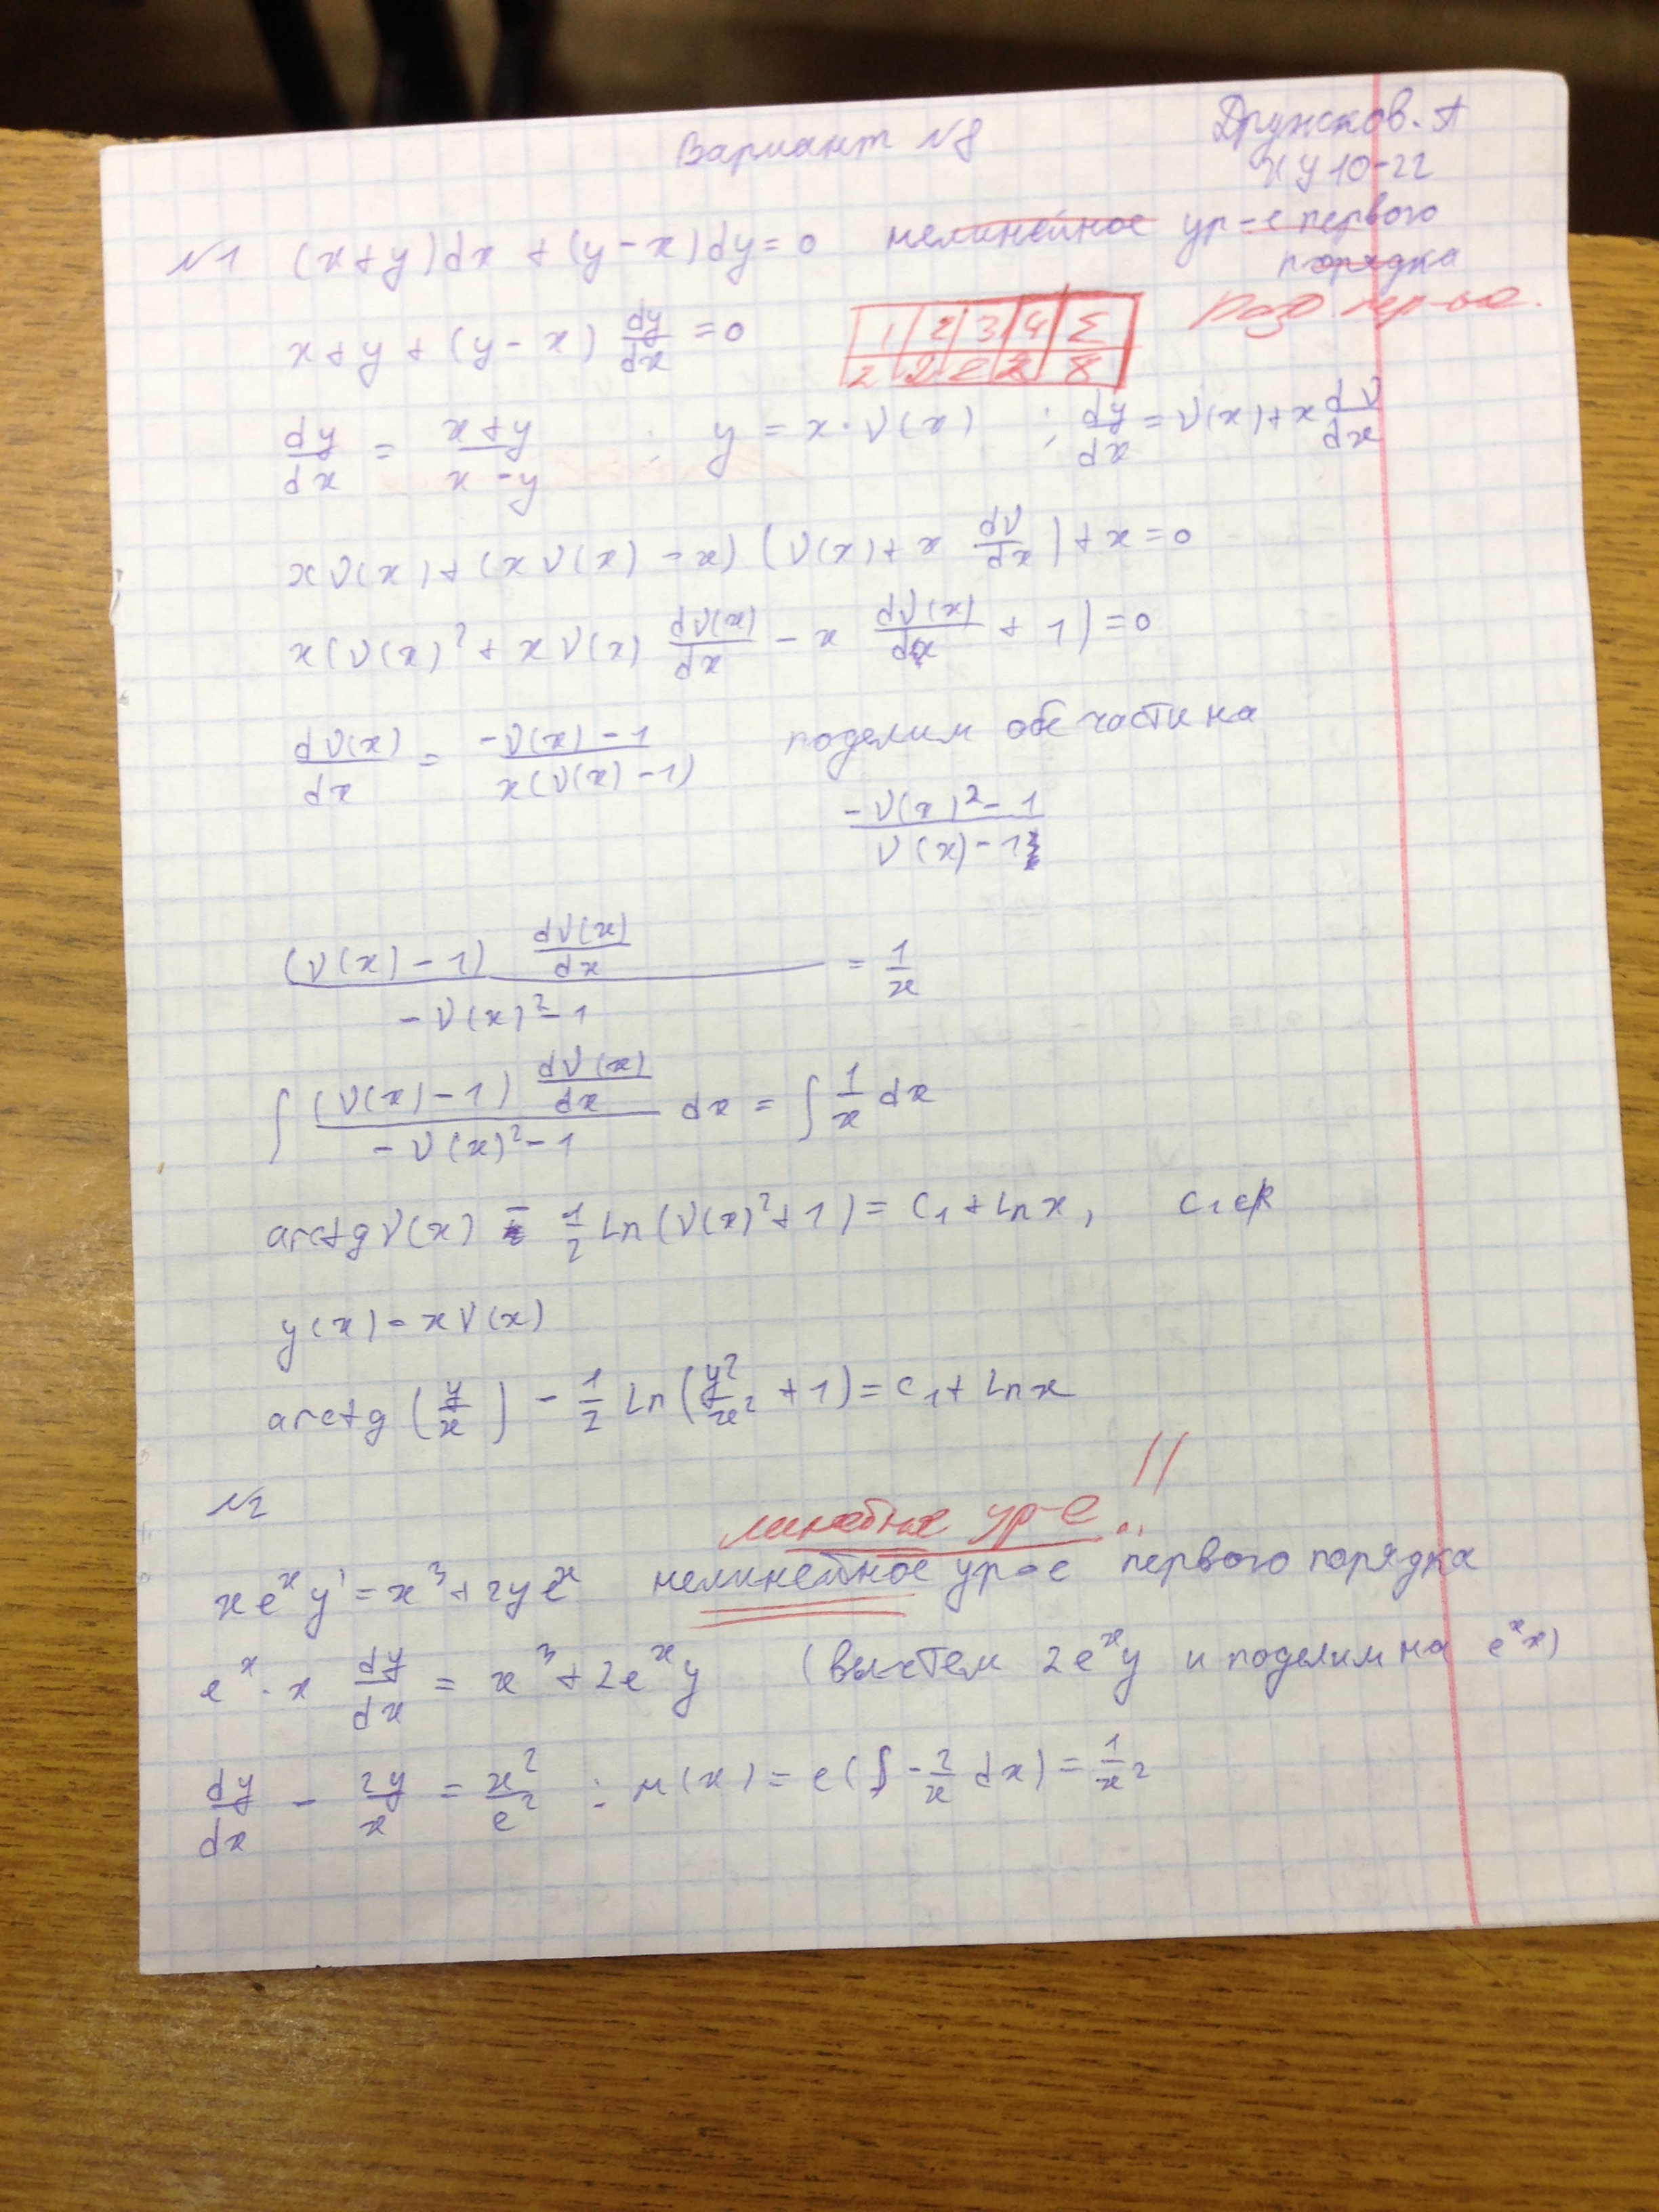 Вариант №8
Дружков. А
ХУ 10-22
№1 (x+y)dx + (y-x)dy = 0 нелинейное ур-е первого
порядка
x+y + (y-x) dy/dx = 0
1 2 3 4 Σ
2 2 2 2 8
dy/dx = (x+y)/(x-y) ; y = x·V(x) ; dy/dx = V(x)+x dV/dx
xV(x)+(xV(x)-x)(V(x)+x dV/dx)+x=0
x(V(x)²+xV(x) dV(x)/dx - x dV(x)/dx + 1)=0
dV(x)/dx = (-V(x)-1)/(x(V(x)-1)) поделим обе части на
(-V(x)²-1)/(V(x)-1)
((V(x)-1) dV(x)/dx)/(-V(x)²-1) = 1/x
∫ ((V(x)-1) dV(x)/dx)/(-V(x)²-1) dx = ∫ 1/x dx
arctg V(x) - 1/2 Ln(V(x)²+1) = C₁+Ln x, C₁∈R
y(x)=xV(x)
arctg (y/x) - 1/2 Ln(y²/x² +1)=C₁+Ln x
№2
линейное ур-е !!
xeˣy' = x³+2yeˣ нелинейное ур-е первого порядка
eˣ·x dy/dx = x³+2eˣy (вычтем 2eˣy и поделим на eˣx)
dy/dx - 2y/x = x²/e² ; м(x) = e(∫-2/x dx) = 1/x²